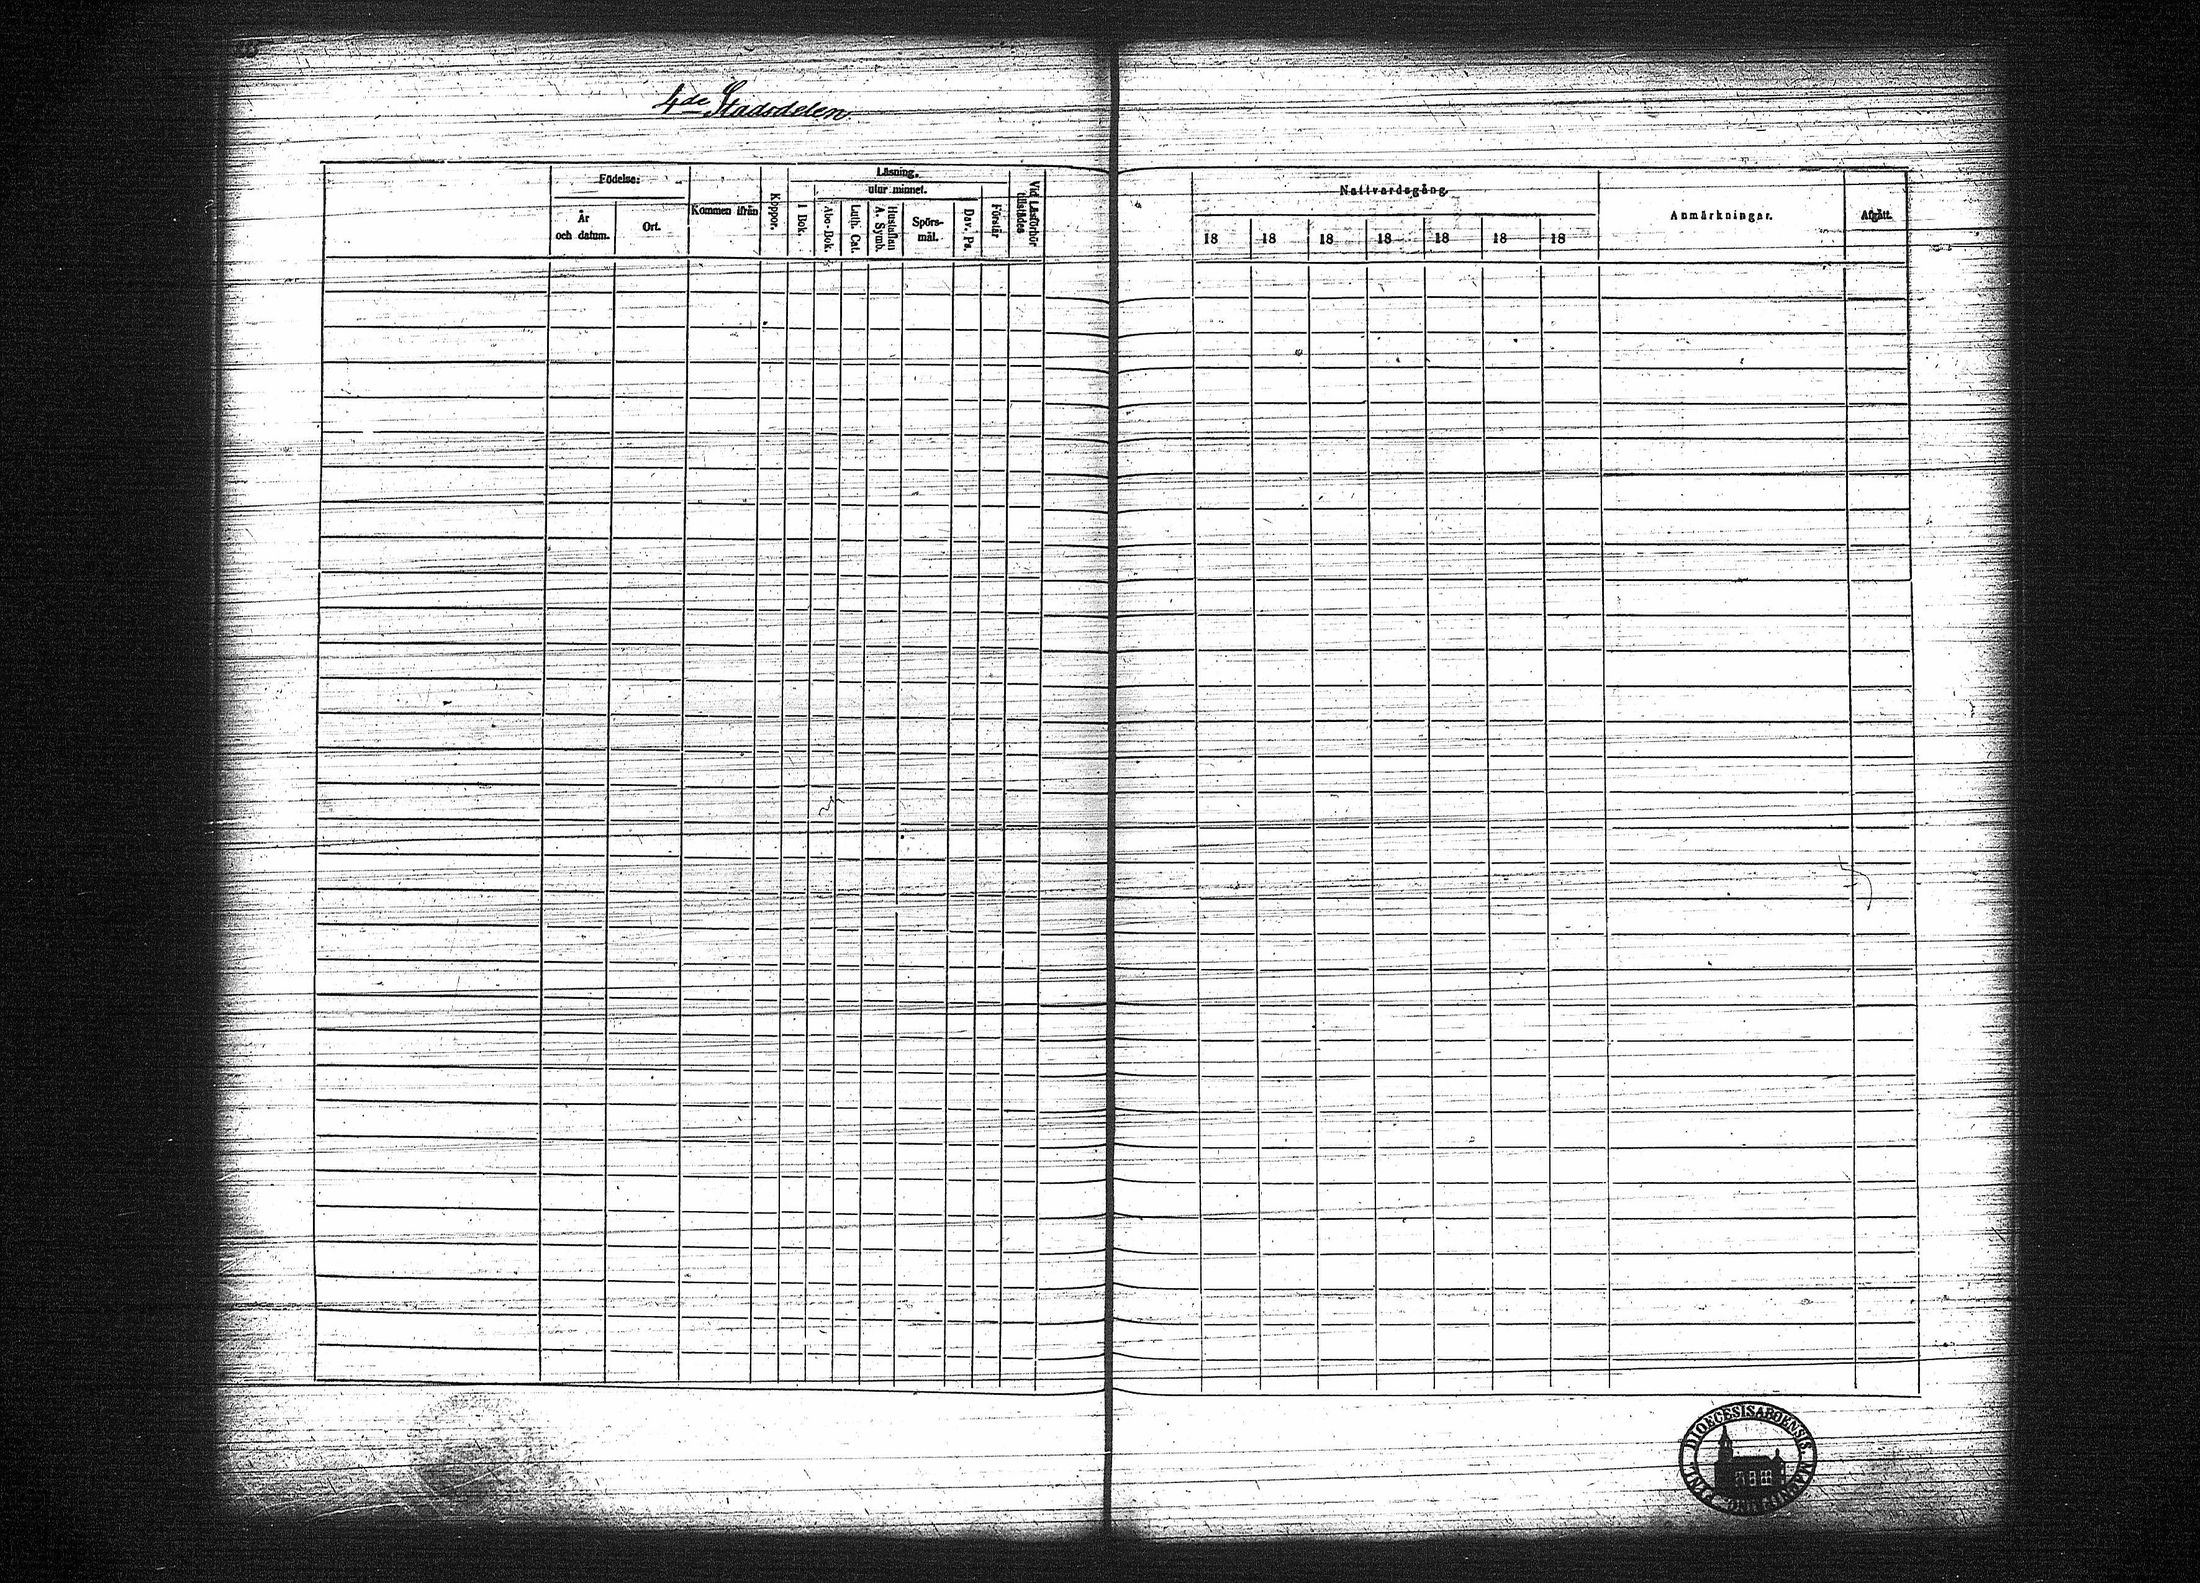 4de Stadsdelen
Födelse:
År
och datum.
Ort.
Kommen ifrån
Koppor.
Läsning.
utur minnet.
I Bok.
Abc-Bok.
Luth. Cat.
Hustaflan
A. Symb.
Spörs-
mål.
Dav. Ps.
Förstår
Vid Läsförhör
tillstädes
Nattvardsgång.
18 18 18 18 18 18 18
Anmärkningar.
Afgått.
DIOECESIS ABOENSIS